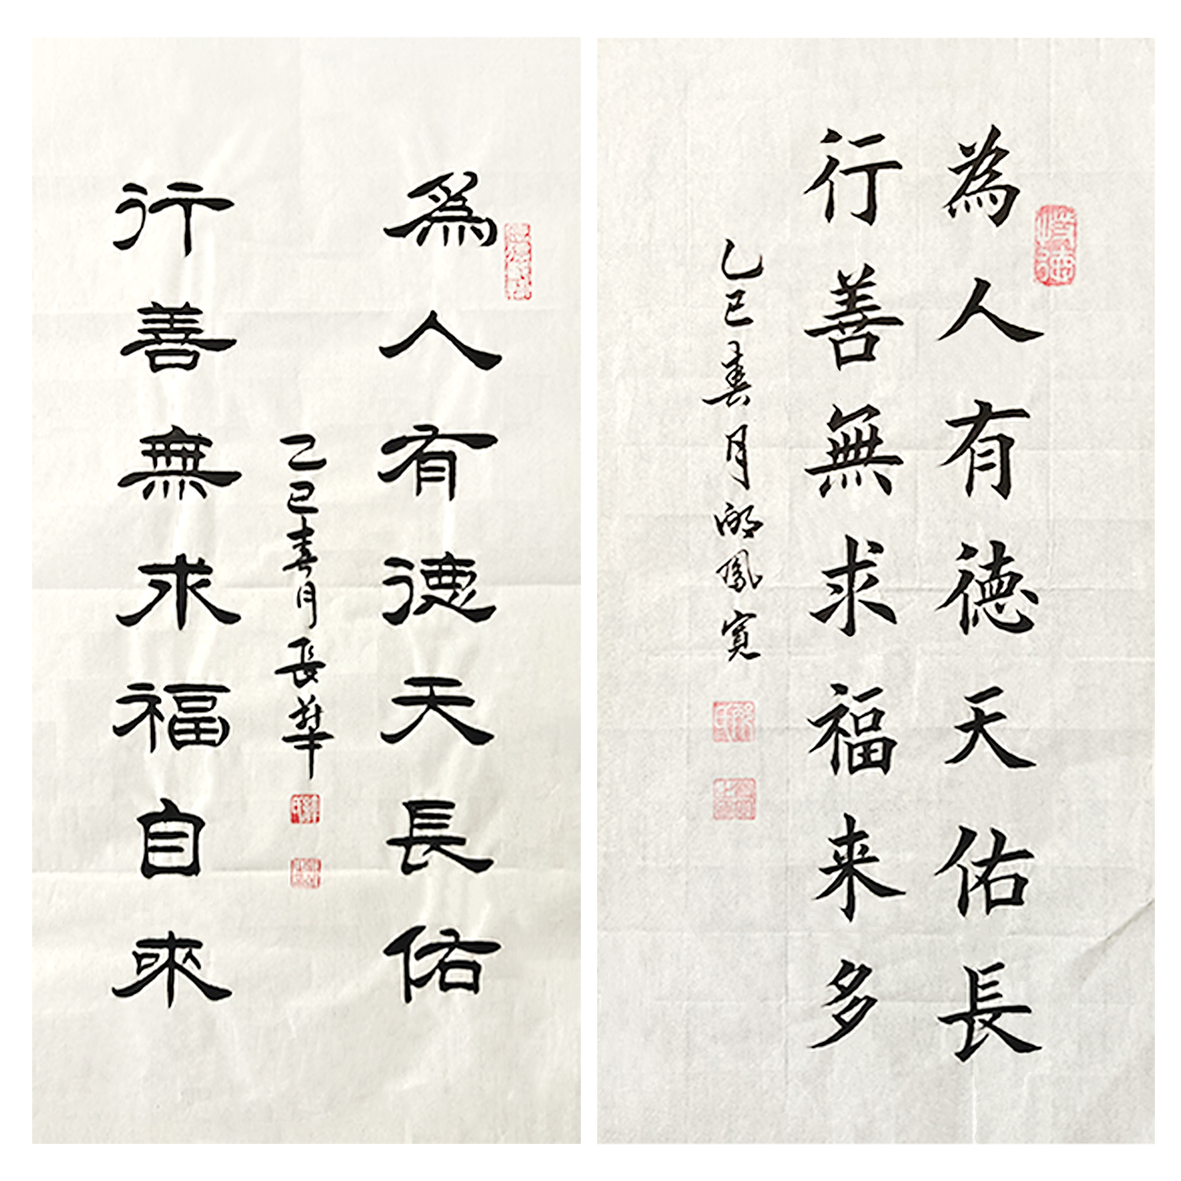 為人有德天長佑
乙巳春月長華
行善無求福自來
為人有德天佑長
行善無求福来多
乙巳春月邴鳳寬